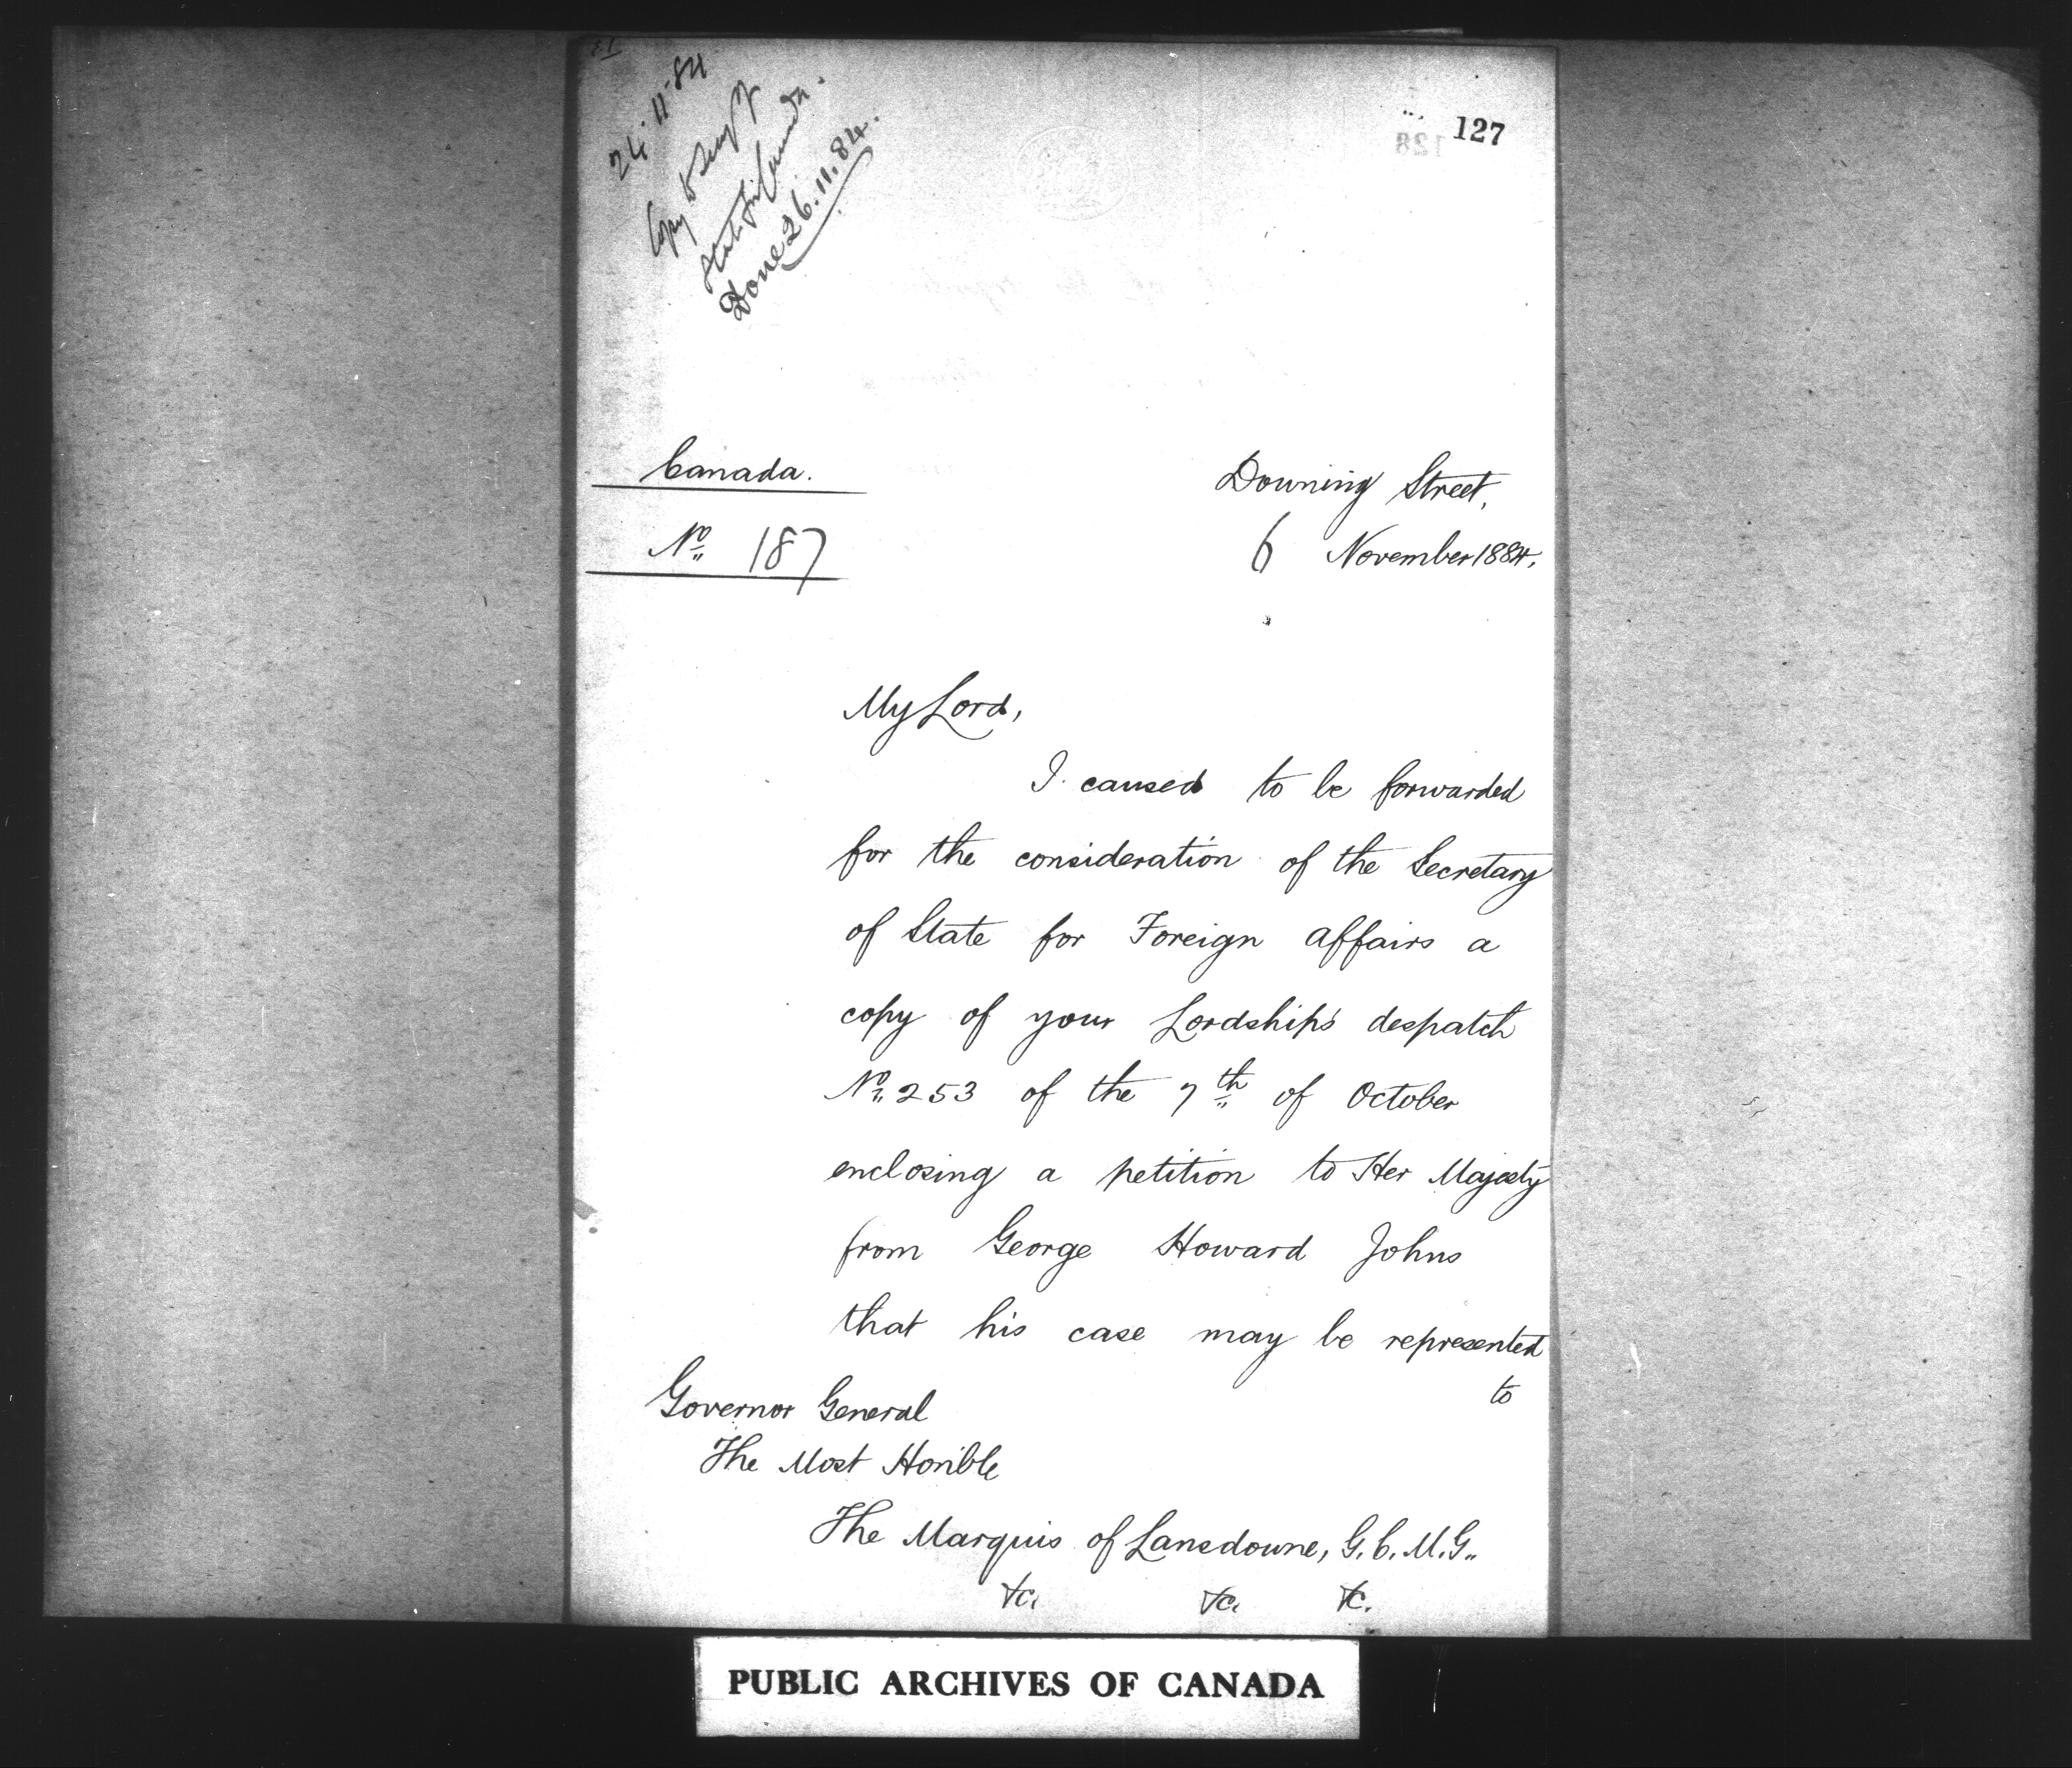 24.11.84
Copy to Secy of
State for Canada.
Done 26.11.84.
127
128
Canada.
No. 187
Downing Street,
6 November 1884.
My Lord,
I caused to be forwarded
for the consideration of the Secretary
of State for Foreign affairs a
copy of your Lordship's despatch
No. 253 of the 7th of October
enclosing a petition to Her Majesty
from George Howard Johns
that his case may be represented
to
Governor General
The Most Honble
The Marquis of Lansdowne, G.C.M.G..
&c. &c. &c.
PUBLIC ARCHIVES OF CANADA